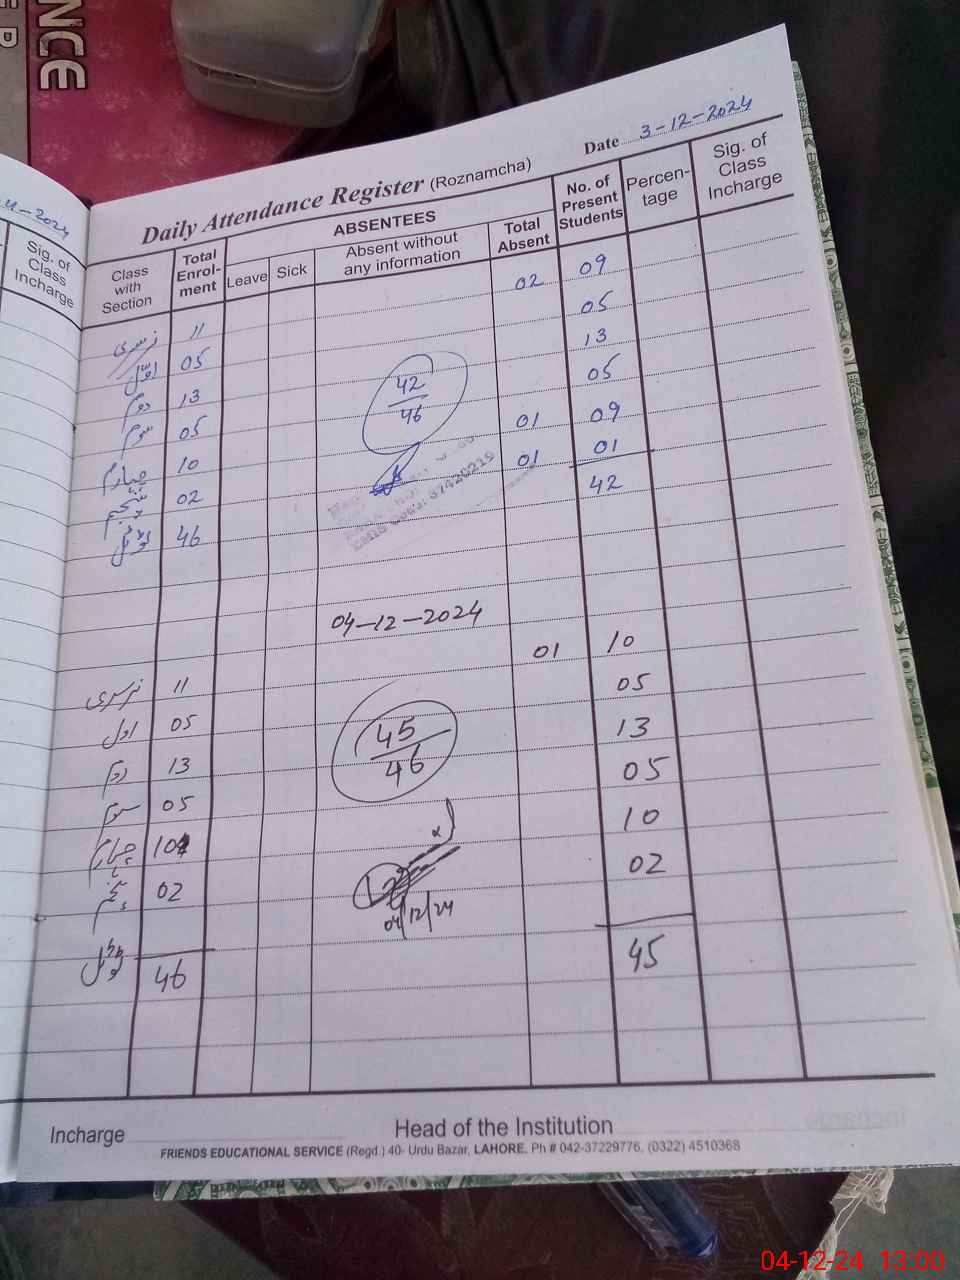 NCE
4-2024
Sig. of
Class
Incharge
Date 3-12-2024
Daily Attendance Register (Roznamcha)
Class with Section
Total Enrol-ment
ABSENTEES
Leave
Sick
Absent without any information
Total Absent
No. of Present Students
Percen-tage
Sig. of Class Incharge
نرسری 11 02 09
اول 05 05
دوم 13 13
سوم 05 05
چہارم 10 01 09
پنجم 02 01 01
ٹوٹل 46 42
42
46
EMIS Code: 37420219
04-12-2024
نرسری 11 01 10
اول 05 05
دوم 13 13
سوم 05 05
چہارم 10 10
پنجم 02 02
ٹوٹل 46 45
45
46
04/12/24
Incharge
Head of the Institution
FRIENDS EDUCATIONAL SERVICE (Regd.) 40- Urdu Bazar, LAHORE. Ph # 042-37229776, (0322) 4510368
04-12-24 13:00